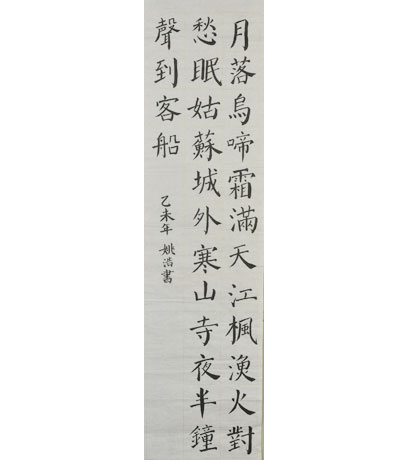 月落烏啼霜滿天江楓漁火對
愁眠姑蘇城外寒山寺夜半鐘
聲到客船
乙未年 姚浩書